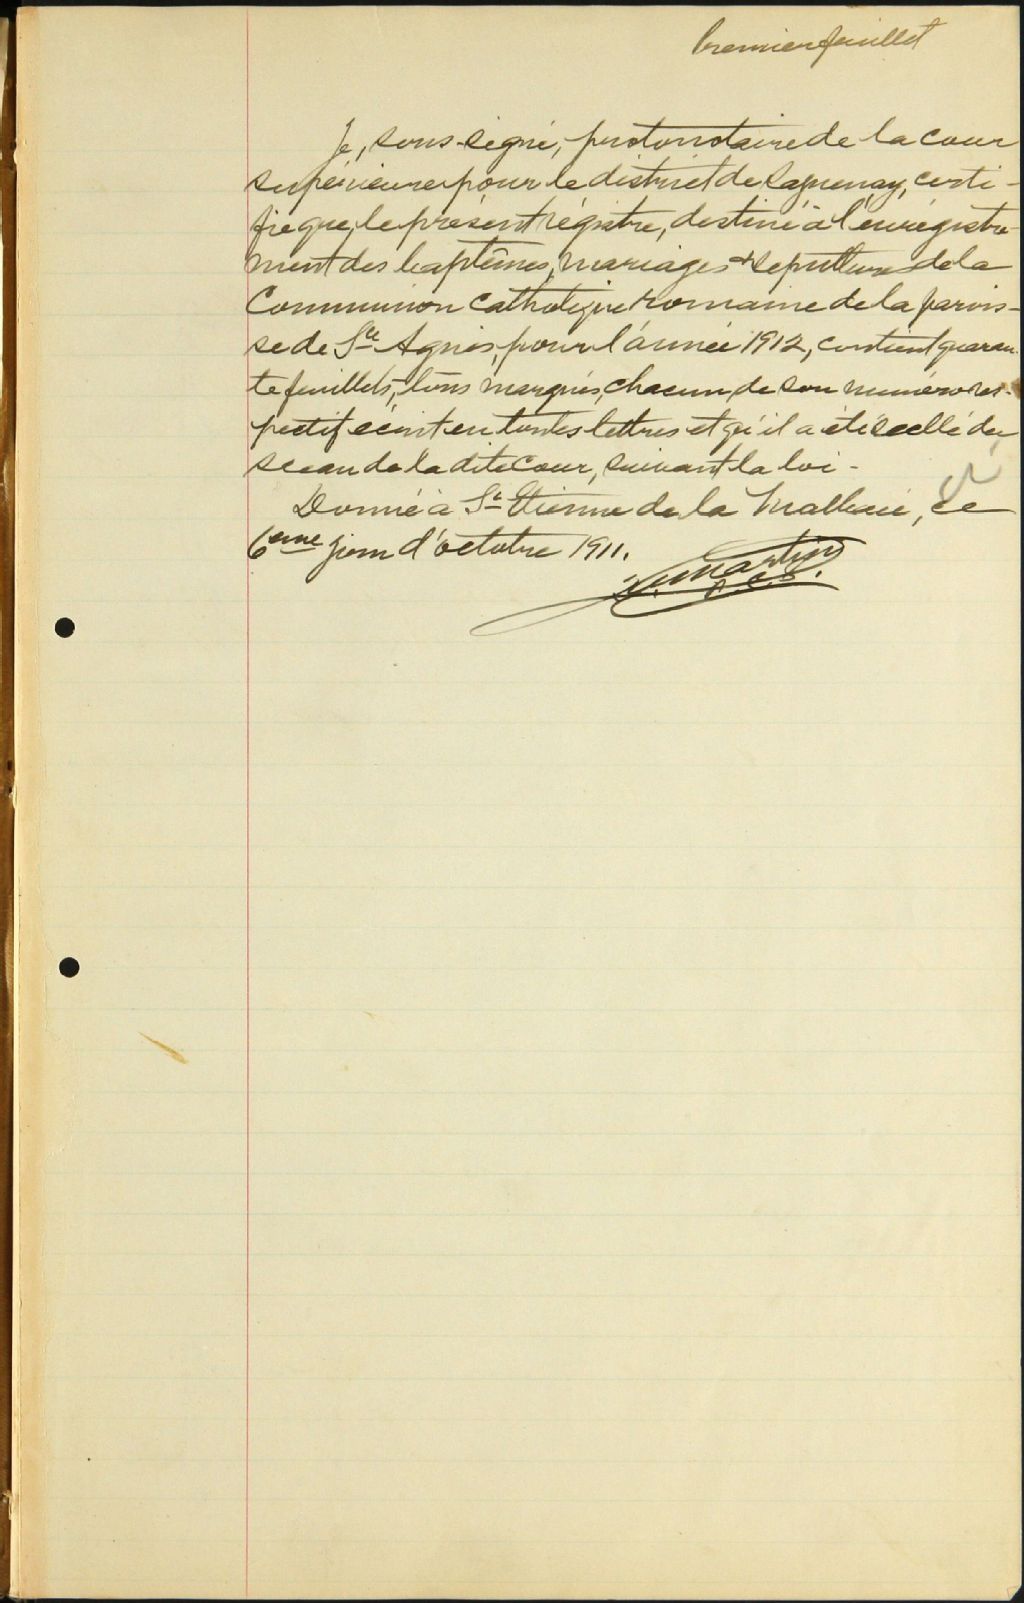 Premier feuillet
Je, sous-signé, protonotaire de la cour
supérieure pour le district de Saguenay, certi-
fie que, le présent régistre, destiné à l'enrégistre-
ment des baptêmes, mariages & sepultures de la
Communion Catholique Romaine de la parois-
se de Ste Agnès, pour l'année 1912, contient quaran-
te feuillets, tous marqués, chacun, de son numéro res-
pectif écrit en toutes lettres et qu'il a été scellé du
sceau de la dite Cour, suivant la loi -
Donné à St Etienne de la Malbaie, ce
6ème jour d'octobre 1911.
Martin
P.C.S.